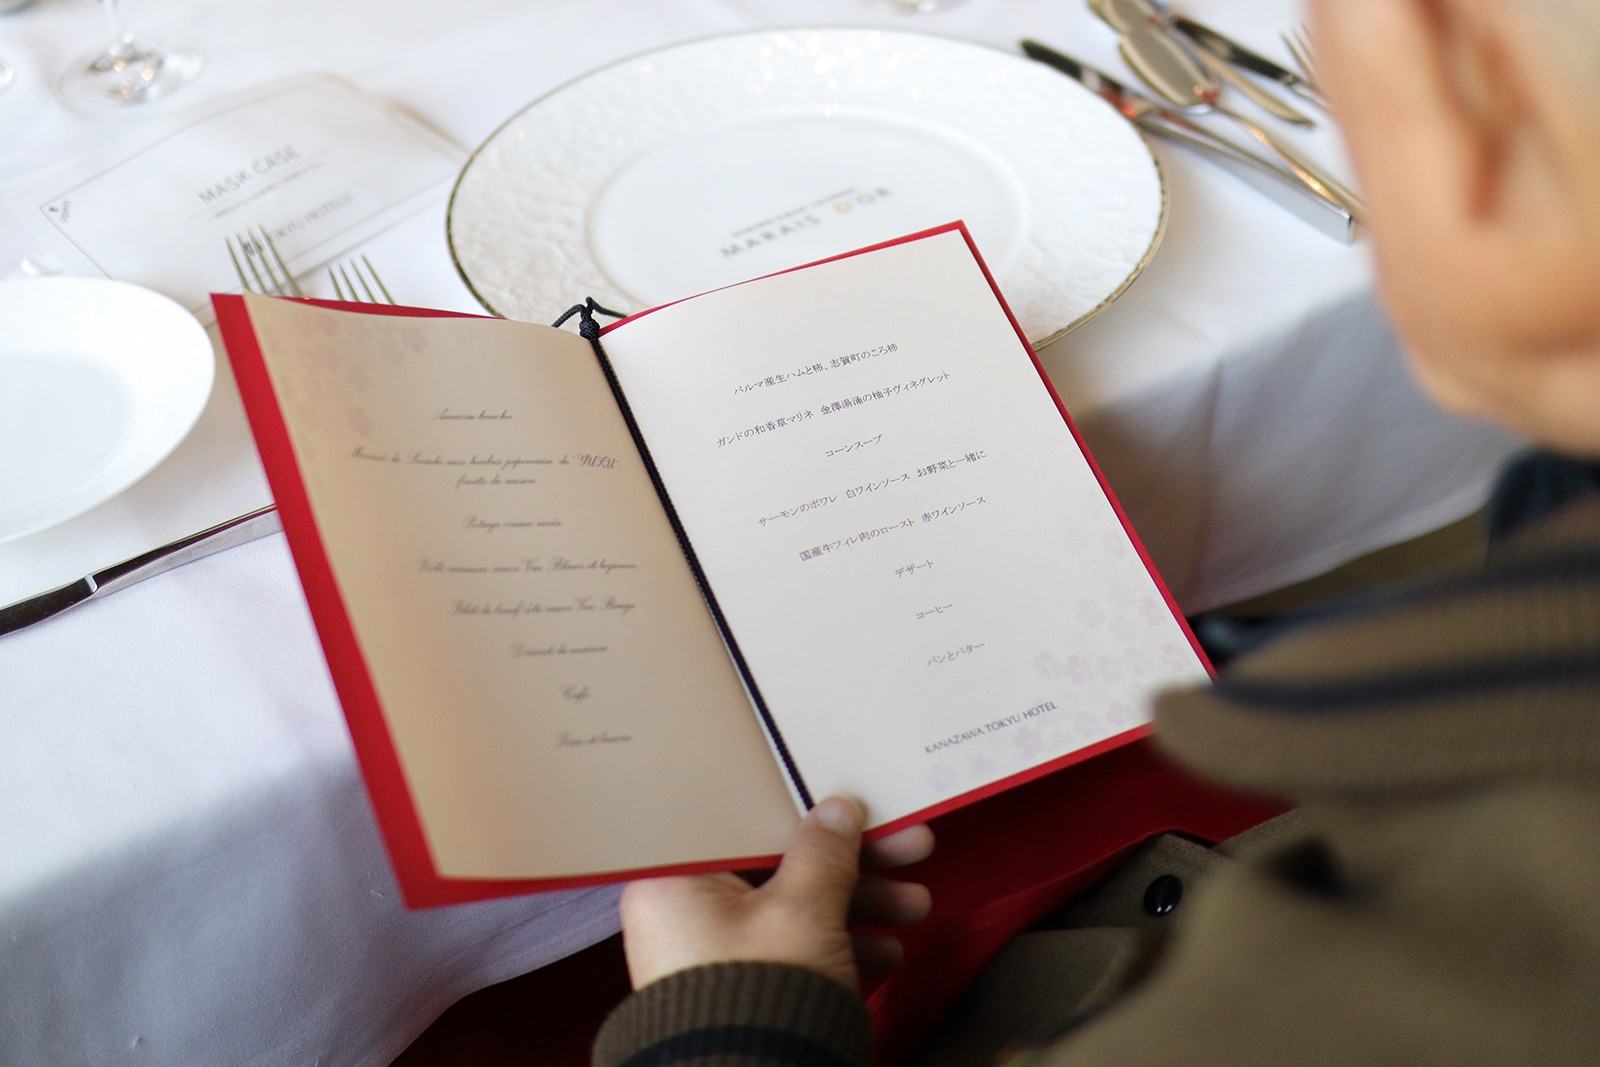 MASK CASE
TOKYU HOTELS
open
MARAIS D'OR
Amuse bouche
"YUZU",
fruits de saison
Potage crème maïs
Vin Blanc et légumes
Vin Rouge
Dessert de maison
Café
Pain et beurre
パルマ産生ハムと柿、志賀町のころ柿
ガンドの和香草マリネ 金澤湯涌の柚子ヴィネグレット
コーンスープ
サーモンのポワレ 白ワインソース お野菜と一緒に
国産牛フィレ肉のロースト 赤ワインソース
デザート
コーヒー
パンとバター
KANAZAWA TOKYU HOTEL